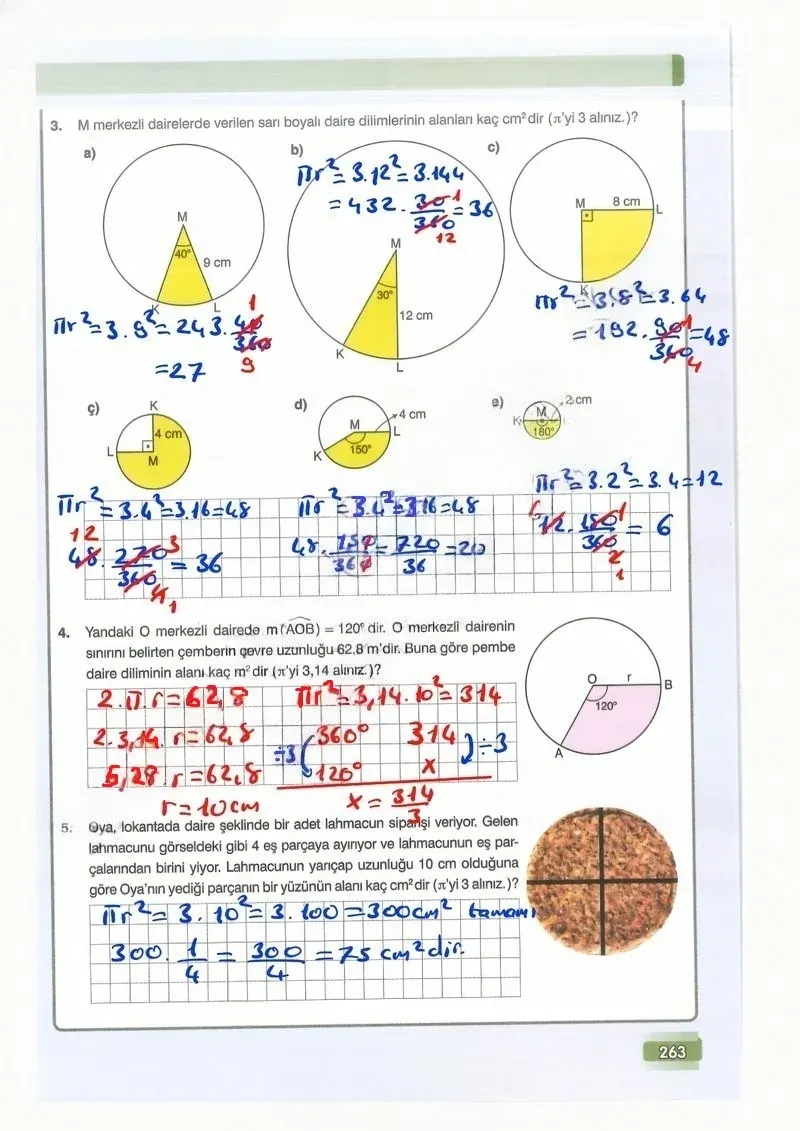 3. M merkezli dairelerde verilen sarı boyalı daire dilimlerinin alanları kaç cm² dir (π'yi 3 alınız.)?
a)
M
40°
9 cm
K
L
πr² = 3.9² = 243. 40/360 1 9
= 27
b)
πr² = 3.12² = 3.144
= 432. 30/360 = 36 1 12
M
30°
12 cm
K
L
c)
M
8 cm
L
K
πr² = 3.8² = 3.64
= 192. 90/360 = 48 1 4
ç)
K
4 cm
L
M
πr² = 3.4² = 3.16 = 48
12 3
48. 270/360 = 36
4 1
d)
M
4 cm
L
150°
K
πr² = 3.4² = 3.16 = 48
48. 150/360 = 720/36 = 20
e)
2 cm
M
K
180°
πr² = 3.2² = 3.4 = 12
12. 180/360 = 6
1
2
1
4. Yandaki O merkezli dairede m(AOB) = 120° dir. O merkezli dairenin
sınırını belirten çemberin çevre uzunluğu 62,8 m'dir. Buna göre pembe
daire diliminin alanı kaç m² dir (π'yi 3,14 alınız.)?
O
r
B
120°
A
2.π.r = 62,8
2.3,14.r = 62,8
6,28.r = 62,8
r = 10cm
πr² = 3,14.10² = 314
360° 314
÷3 ÷3
120° x
x = 314/3
5. Oya, lokantada daire şeklinde bir adet lahmacun siparişi veriyor. Gelen
lahmacunu görseldeki gibi 4 eş parçaya ayırıyor ve lahmacunun eş par-
çalarından birini yiyor. Lahmacunun yarıçap uzunluğu 10 cm olduğuna
göre Oya'nın yediği parçanın bir yüzünün alanı kaç cm² dir (π'yi 3 alınız.)?
πr² = 3.10² = 3.100 = 300cm² tamamı
300. 1/4 = 300/4 = 75 cm² dir.
263